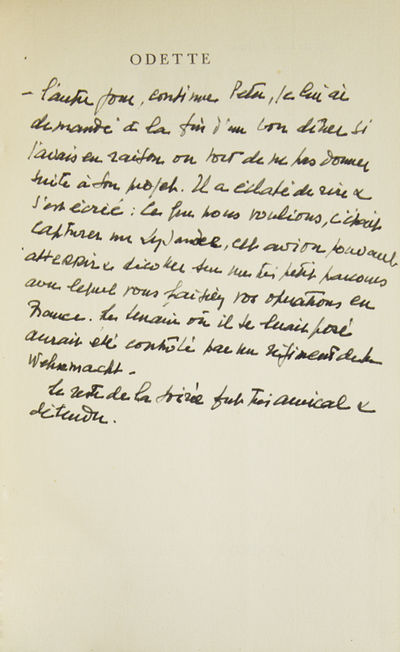 ODETTE
– L'autre jour, continue Peter, je lui ai
demandé à la fin d'un bon dîner si
j'avais eu raison ou tort de ne pas donner
suite à son projet. Il a éclaté de rire &
s'est écrié : Ce que nous voulions, c'était
capturer un Lysander, cet avion pouvant
atterrir & décoller sur un très petit parcours
avec lequel vous faisiez vos opérations en
France. Le terrain où il se serait posé
aurait été contrôlé par un régiment de la
Wehrmacht –
Le reste de la soirée fut très amical &
détendu.